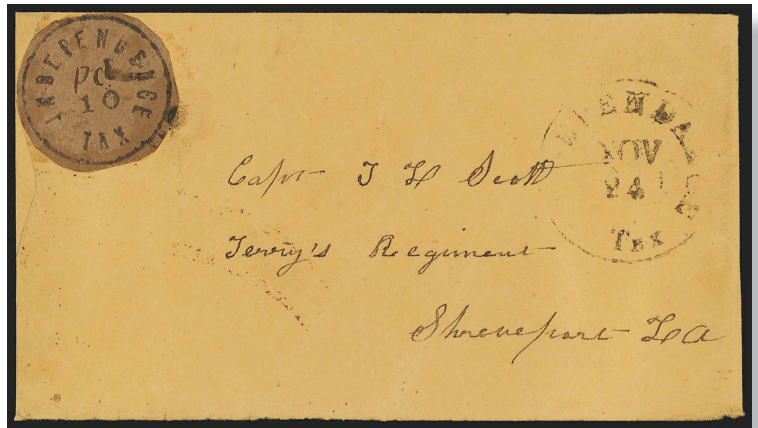 INDEPENDENCE
Pd
10
TEX
NOV
24
TEX
Capt T H Scott
Terry's Regiment
Shreveport LA